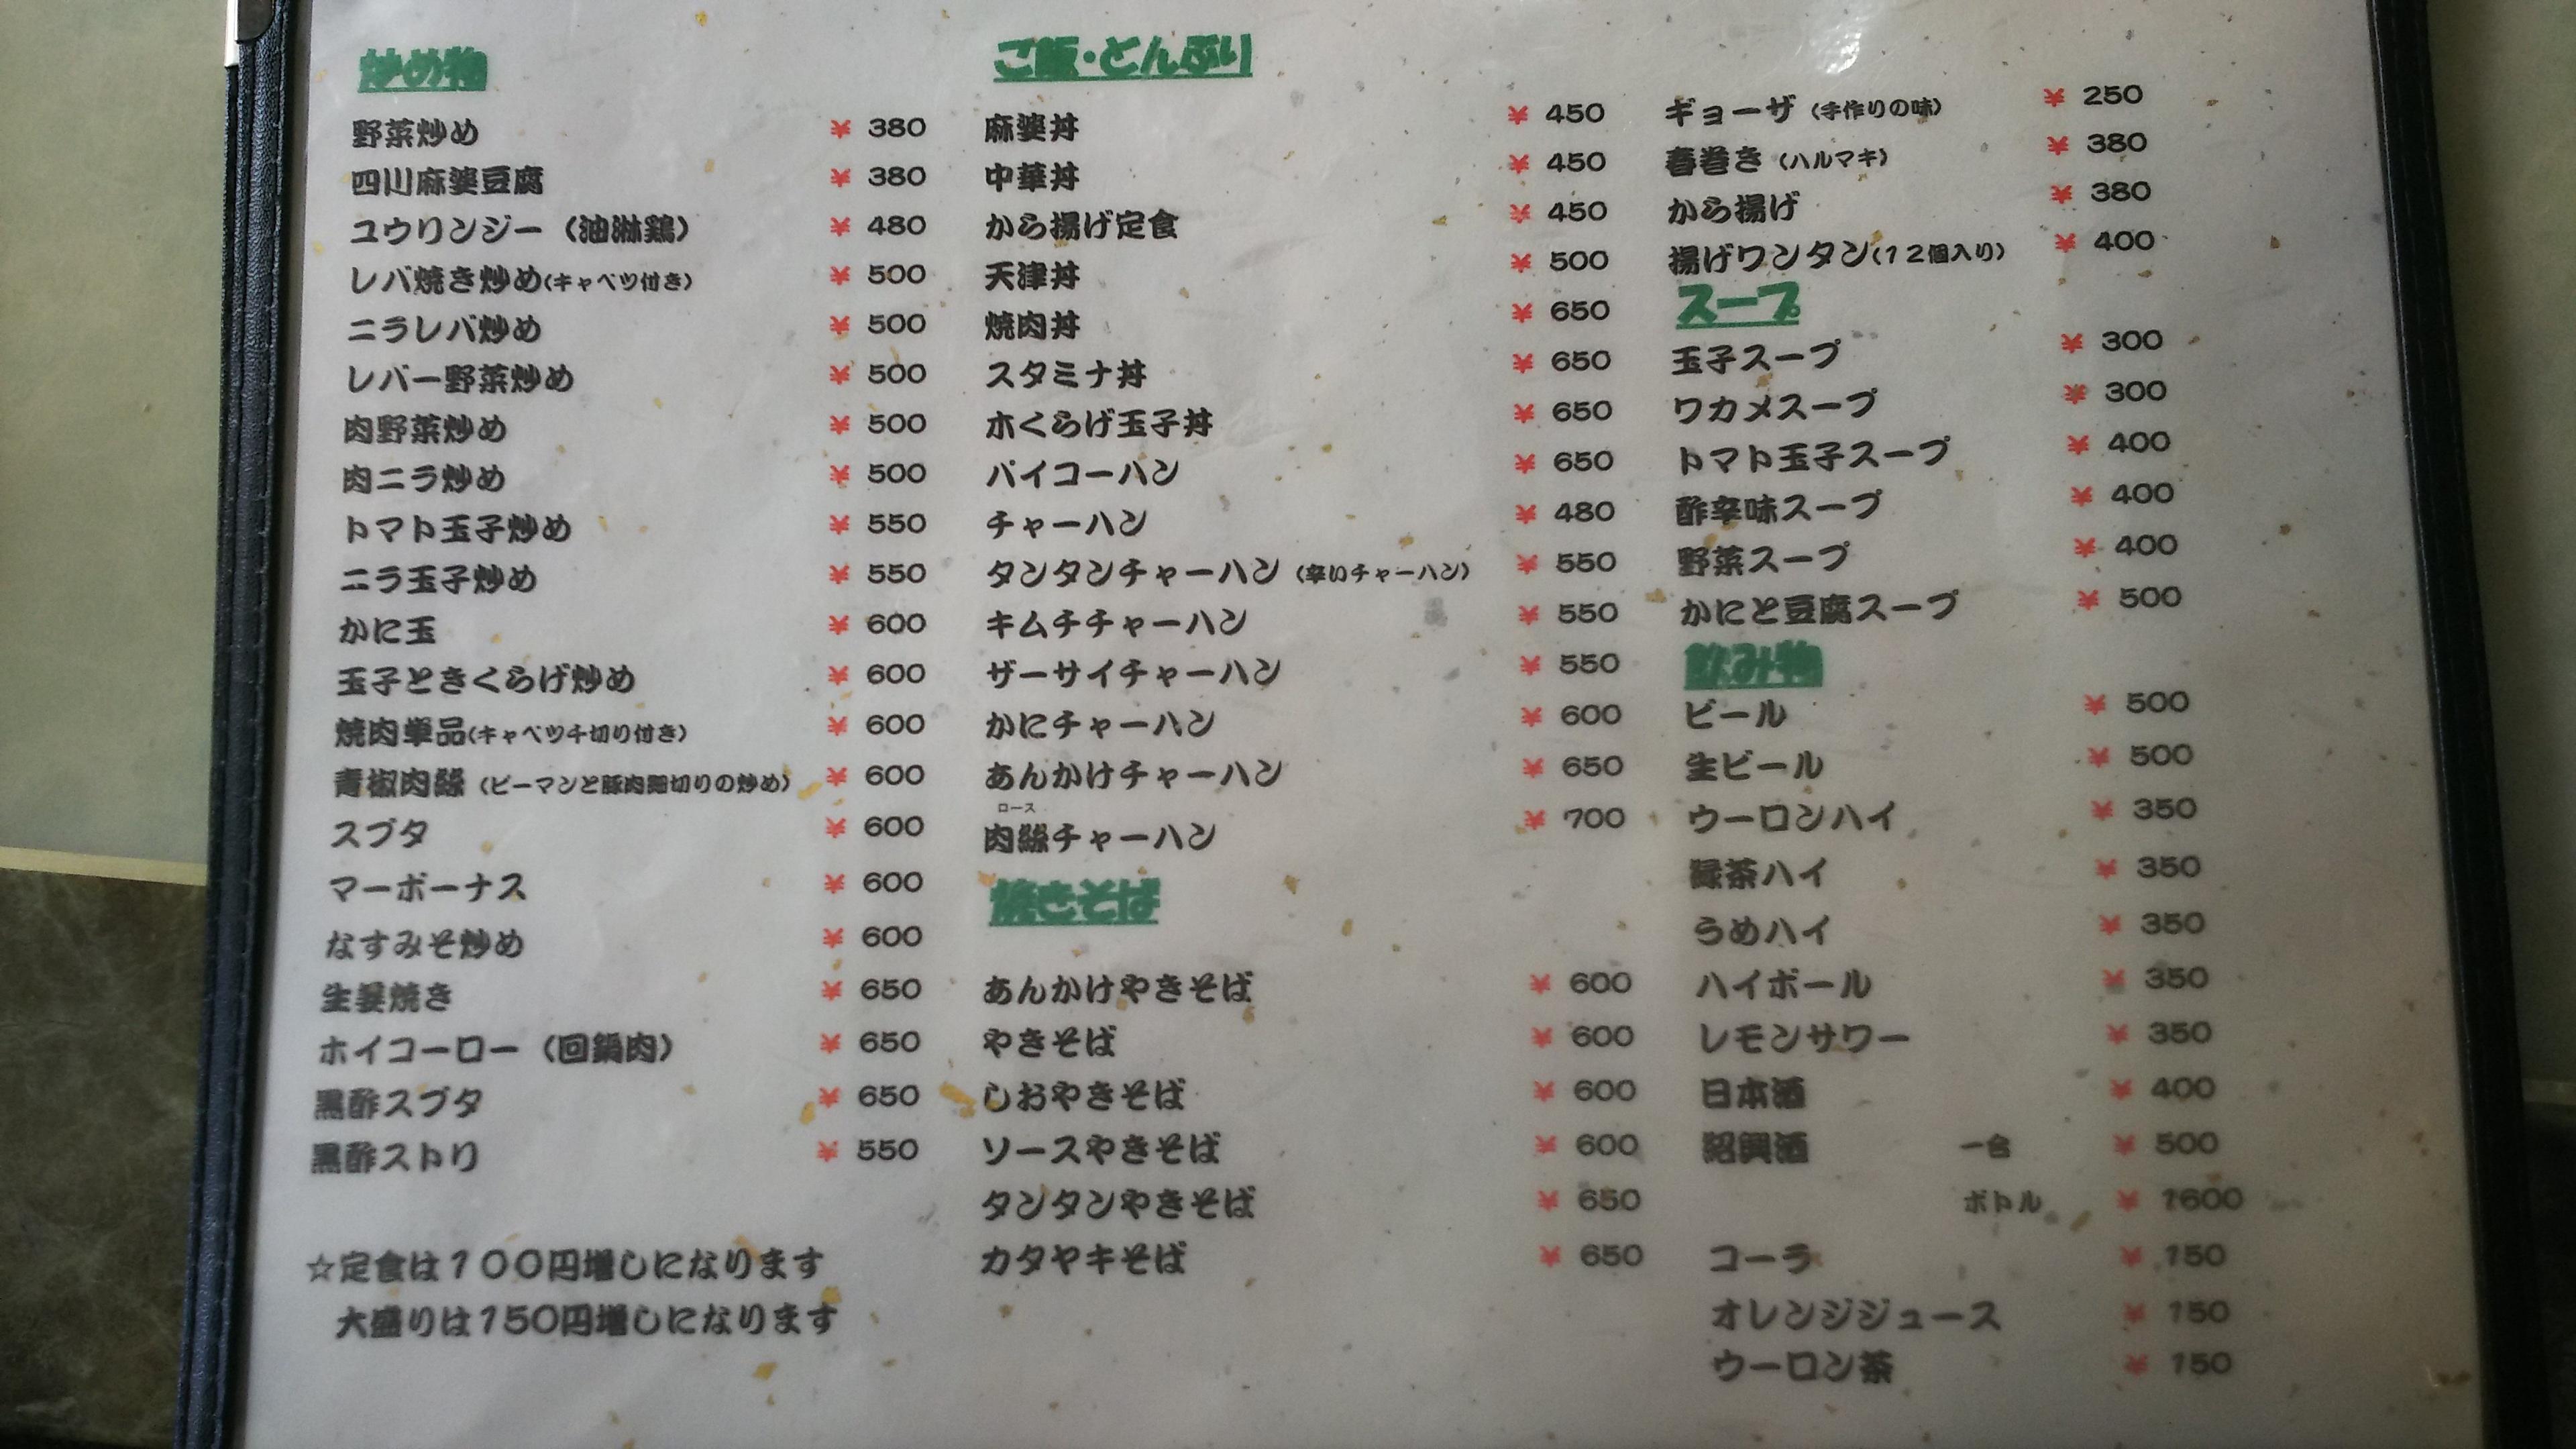 炒め物
野菜炒め ¥ 380
四川麻婆豆腐 ¥ 380
ユウリンジー（油淋鶏） ¥ 480
レバ焼き炒め(キャベツ付き) ¥ 500
ニラレバ炒め ¥ 500
レバー野菜炒め ¥ 500
肉野菜炒め ¥ 500
肉ニラ炒め ¥ 500
トマト玉子炒め ¥ 550
ニラ玉子炒め ¥ 550
かに玉 ¥ 600
玉子ときくらげ炒め ¥ 600
焼肉単品(キャベツ千切り付き) ¥ 600
青椒肉絲（ピーマンと豚肉細切りの炒め） ¥ 600
スブタ ¥ 600
マーボーナス ¥ 600
なすみそ炒め ¥ 600
生姜焼き ¥ 650
ホイコーロー（回鍋肉） ¥ 650
黒酢スブタ ¥ 650
黒酢ストリ ¥ 550
☆定食は１００円増しになります
大盛りは150円増しになります
ご飯・どんぶり
麻婆丼 ¥ 450
中華丼 ¥ 450
から揚げ定食 ¥ 450
天津丼 ¥ 500
焼肉丼 ¥ 650
スタミナ丼 ¥ 650
木くらげ玉子丼 ¥ 650
パイコーハン ¥ 650
チャーハン ¥ 480
タンタンチャーハン（辛いチャーハン） ¥ 550
キムチチャーハン ¥ 550
ザーサイチャーハン ¥ 550
かにチャーハン ¥ 600
あんかけチャーハン ¥ 650
ロース
肉絲チャーハン ¥ 700
焼きそば
あんかけやきそば ¥ 600
やきそば ¥ 600
しおやきそば ¥ 600
ソースやきそば ¥ 600
タンタンやきそば ¥ 650
カタヤキそば ¥ 650
ギョーザ（手作りの味） ¥ 250
春巻き（ハルマキ） ¥ 380
から揚げ ¥ 380
揚げワンタン(１２個入り) ¥ 400
スープ
玉子スープ ¥ 300
ワカメスープ ¥ 300
トマト玉子スープ ¥ 400
酢辛味スープ ¥ 400
野菜スープ ¥ 400
かにと豆腐スープ ¥ 500
飲み物
ビール ¥ 500
生ビール ¥ 500
ウーロンハイ ¥ 350
緑茶ハイ ¥ 350
うめハイ ¥ 350
ハイボール ¥ 350
レモンサワー ¥ 350
日本酒 ¥ 400
紹興酒 一合 ¥ 500
ボトル ¥ 1600
コーラ ¥ 150
オレンジジュース ¥ 150
ウーロン茶 ¥ 150